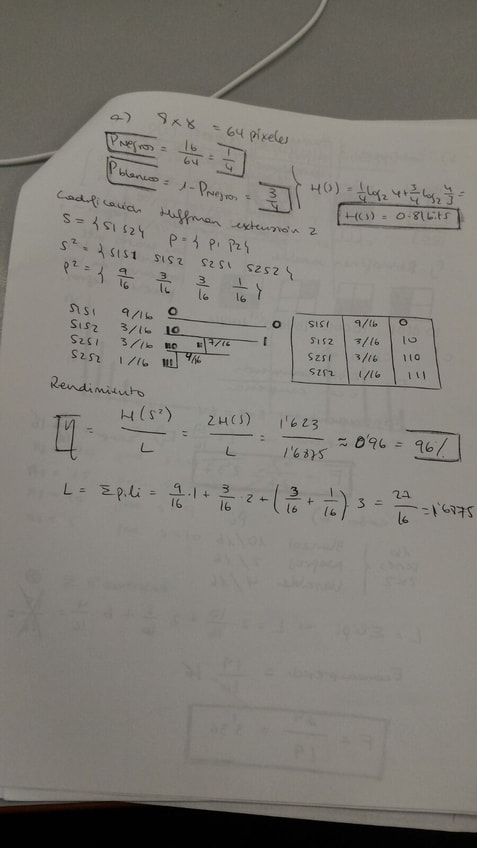 a) 8 x 8 = 64 píxeles
Pnegros = 16/64 = 1/4
Pblanco = 1 - Pnegros = 3/4 } H(S) = 1/4 log2 4 + 3/4 log2 4/3 =
H(S) = 0.81675
Codificación Huffman extensión 2
S = { S1 S2 } P = { P1 P2 }
S² = { S1S1 S1S2 S2S1 S2S2 }
P² = { 9/16 3/16 3/16 1/16 }
S1S1 9/16 0 0
S1S2 3/16 10 1
S2S1 3/16 110 7/16
S2S2 1/16 111 4/16
S1S1 9/16 0
S1S2 3/16 10
S2S1 3/16 110
S2S2 1/16 111
Rendimiento
η = H(S²)/L = 2H(S)/L = 1'623/1'6875 ≈ 0'96 = 96%
L = Σ pi li = 9/16 · 1 + 3/16 · 2 + (3/16 + 1/16) 3 = 27/16 = 1'6875